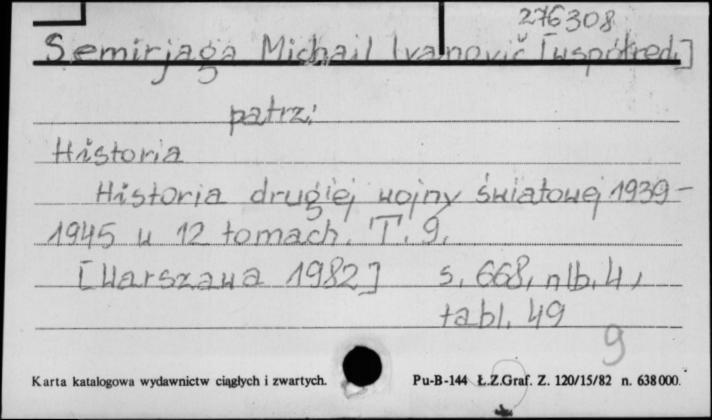 276308
Semirjaga Michail Ivanovič [współred.]
patrz:
Historia
Historia drugiej wojny światowej 1939-
1945 w 12 tomach. T. 9.
[Warszawa 1982] s. 668, nlb. 4,
tabl. 49
9
Karta katalogowa wydawnictw ciągłych i zwartych. Pu-B-144 Ł.Z.Graf. Z. 120/15/82 n. 638000.